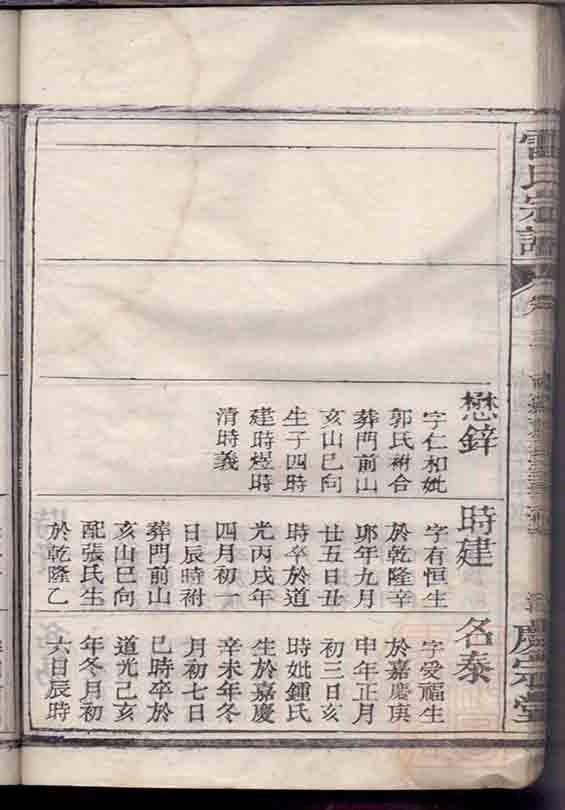 雷氏宗譜
卷
慶宗堂
懋鋅
字仁和妣
郭氏祔合
葬門前山
亥山巳向
生子四時
建時煜時
清時義
時建
字有恒生
於乾隆辛
卯年九月
廿五日丑
時卒於道
光丙戌年
四月初一
日辰時祔
葬門前山
亥山巳向
配張氏生
於乾隆乙
名泰
字受福生
於嘉慶庚
申年正月
初三日亥
時妣鍾氏
生於嘉慶
辛未年冬
月初七日
巳時卒於
道光己亥
年冬月初
六日辰時